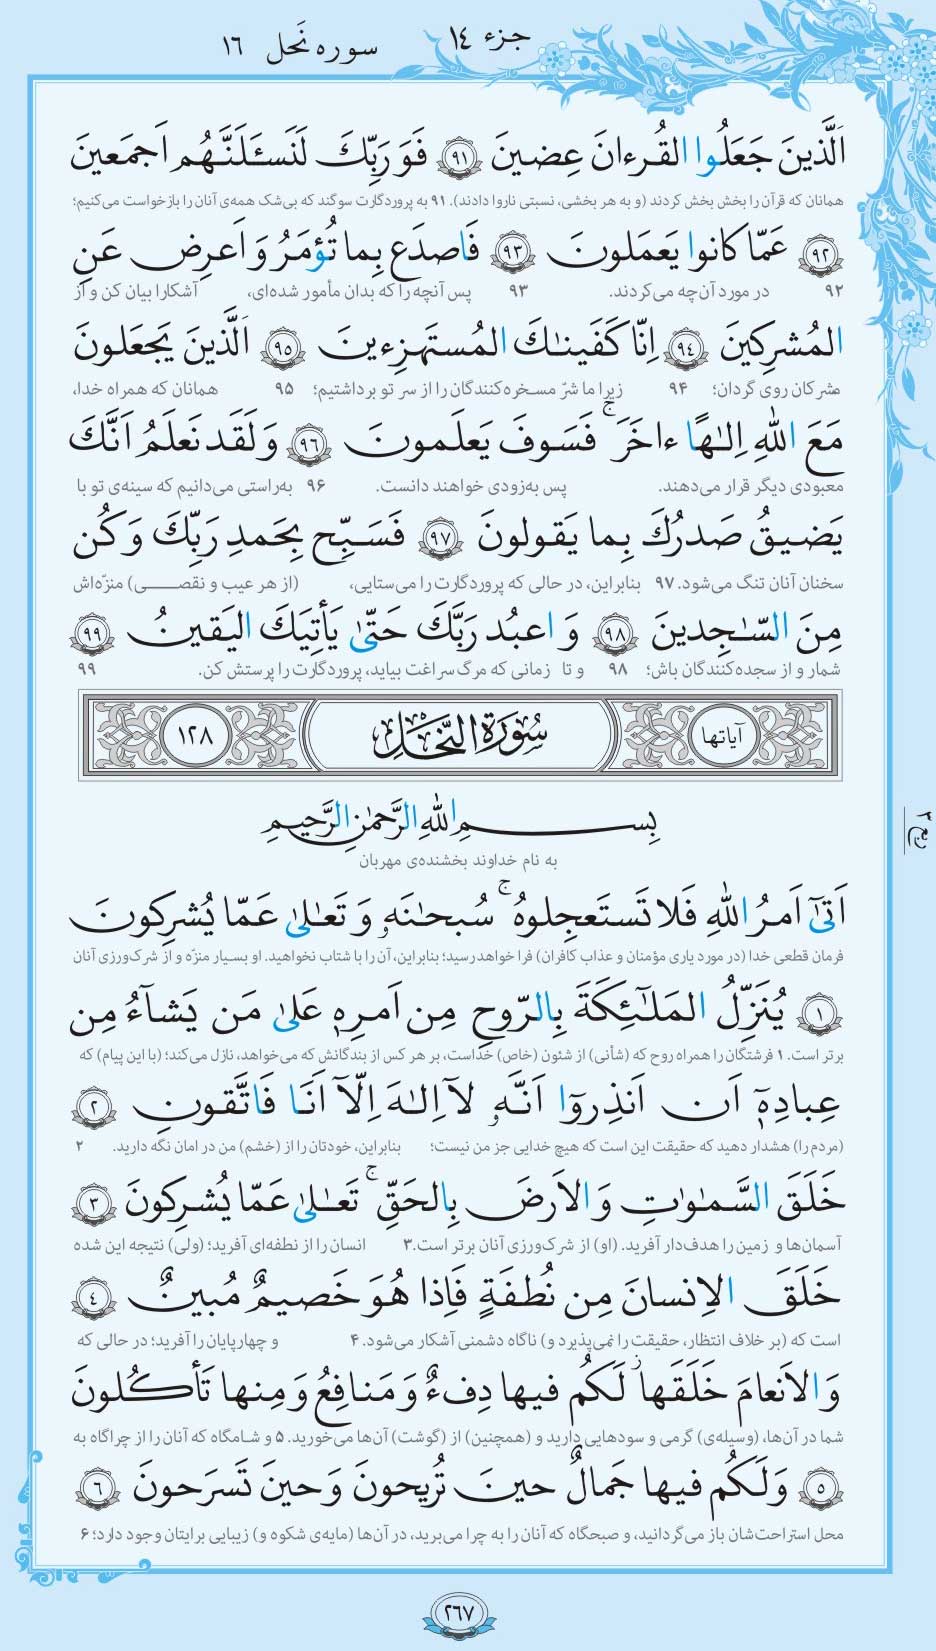 جزء ١٤
سوره نَحل ١٦
اَلَّذينَ جَعَلُوا القُرءانَ عِضينَ ﴿٩١﴾ فَوَرَبِّكَ لَنَسـَٔلَنَّهُم اَجمَعينَ
همانان که قرآن را بخش بخش کردند (و به هر بخشی، نسبتی ناروا دادند). ۹۱ به پروردگارت سوگند که بی‌شک همه‌ی آنان را بازخواست می‌کنیم؛
﴿٩٢﴾ عَمّا كانوا يَعمَلونَ ﴿٩٣﴾ فَاصدَع بِما تُؤمَرُ وَ اَعرِض عَنِ
۹۲ در مورد آن‌چه می‌کردند. ۹۳ پس آنچه را که بدان مأمور شده‌ای، آشکارا بیان کن و از
المُشرِكينَ ﴿٩٤﴾ اِنّا كَفَيناكَ المُستَهزِءينَ ﴿٩٥﴾ اَلَّذينَ يَجعَلونَ
مشرکان روی گردان؛ ۹۴ زیرا ما شرّ مسخره‌کنندگان را از سر تو برداشتیم؛ ۹۵ همانان که همراه خدا،
مَعَ اللّٰهِ اِلـٰهًا ءاخَرَ ۚ فَسَوفَ يَعلَمونَ ﴿٩٦﴾ وَ لَقَد نَعلَمُ اَنَّكَ
معبودی دیگر قرار می‌دهند. پس به‌زودی خواهند دانست. ۹۶ به‌راستی می‌دانیم که سینه‌ی تو با
يَضيقُ صَدرُكَ بِما يَقولونَ ﴿٩٧﴾ فَسَبِّح بِحَمدِ رَبِّكَ وَ كُن
سخنان آنان تنگ می‌شود. ۹۷ بنابراین، در حالی که پروردگارت را می‌ستایی، (از هر عیب و نقصـی) منزّه‌اش
مِنَ السّـٰجِدينَ ﴿٩٨﴾ وَ اعبُد رَبَّكَ حَتّىٰ يَأتِيَكَ اليَقينُ ﴿٩٩﴾
شمار و از سجده‌کنندگان باش؛ ۹۸ و تا زمانی که مرگ سراغت بیاید، پروردگارت را پرستش کن. ۹۹
آیاتها سُورَةُ النَّحلِ ١٢٨
بِسمِ اللّٰهِ الرَّحمٰنِ الرَّحيمِ
به نام خداوند بخشنده‌ی مهربان
ربع ٢
اَتىٰٓ اَمرُ اللّٰهِ فَلا تَستَعجِلوهُ ۚ سُبحـٰنَهٗ وَ تَعـٰلىٰ عَمّا يُشرِكونَ
فرمان قطعی خدا (در مورد یاری مؤمنان و عذاب کافران) فرا خواهد رسید؛ بنابراین، آن را با شتاب نخواهید. او بسیار منزّه و از شرک‌ورزی آنان
﴿١﴾ يُنَزِّلُ المَلـٰٓئِكَةَ بِالرّوحِ مِن اَمرِهٖ عَلىٰ مَن يَشآءُ مِن
برتر است. ۱ فرشتگان را همراه روح که (شأنی) از شئون (خاص) خداست، بر هر کس از بندگانش که می‌خواهد، نازل می‌کند؛ (با این پیام) که
عِبادِهٖٓ اَن اَنذِروٓا اَنَّهٗ لآ اِلـٰهَ اِلّآ اَنَا فَاتَّقونِ ﴿٢﴾
(مردم را) هشدار دهید که حقیقت این است که هیچ خدایی جز من نیست؛ بنابراین، خودتان را از (خشم) من در امان نگه دارید. ۲
خَلَقَ السَّمـٰوٰتِ وَ الاَرضَ بِالحَقِّ ۚ تَعـٰلىٰ عَمّا يُشرِكونَ ﴿٣﴾
آسمان‌ها و زمین را هدف‌دار آفرید. (او) از شرک‌ورزی آنان برتر است. ۳ انسان را از نطفه‌ای آفرید؛ (ولی) نتیجه این شده
خَلَقَ الاِنسانَ مِن نُطفَةٍ فَاِذا هُوَ خَصيمٌ مُبينٌ ﴿٤﴾
است که (بر خلاف انتظار، حقیقت را نمی‌پذیرد و) ناگاه دشمنی آشکار می‌شود. ۴ و چهارپایان را آفرید؛ در حالی که
وَ الاَنعامَ خَلَقَها ۗ لَكُم فيها دِفءٌ وَ مَنافِعُ وَ مِنها تَأكُلونَ
شما در آن‌ها، (وسیله‌ی) گرمی و سودهایی دارید و (همچنین) از (گوشت) آن‌ها می‌خورید. ۵ و شامگاه که آنان را از چراگاه به
﴿٥﴾ وَ لَكُم فيها جَمالٌ حينَ تُريحونَ وَ حينَ تَسرَحونَ ﴿٦﴾
محل استراحت‌شان باز می‌گردانید، و صبحگاه که آنان را به چرا می‌برید، در آن‌ها (مایه‌ی شکوه و) زیبایی برایتان وجود دارد؛ ۶
٢٦٧